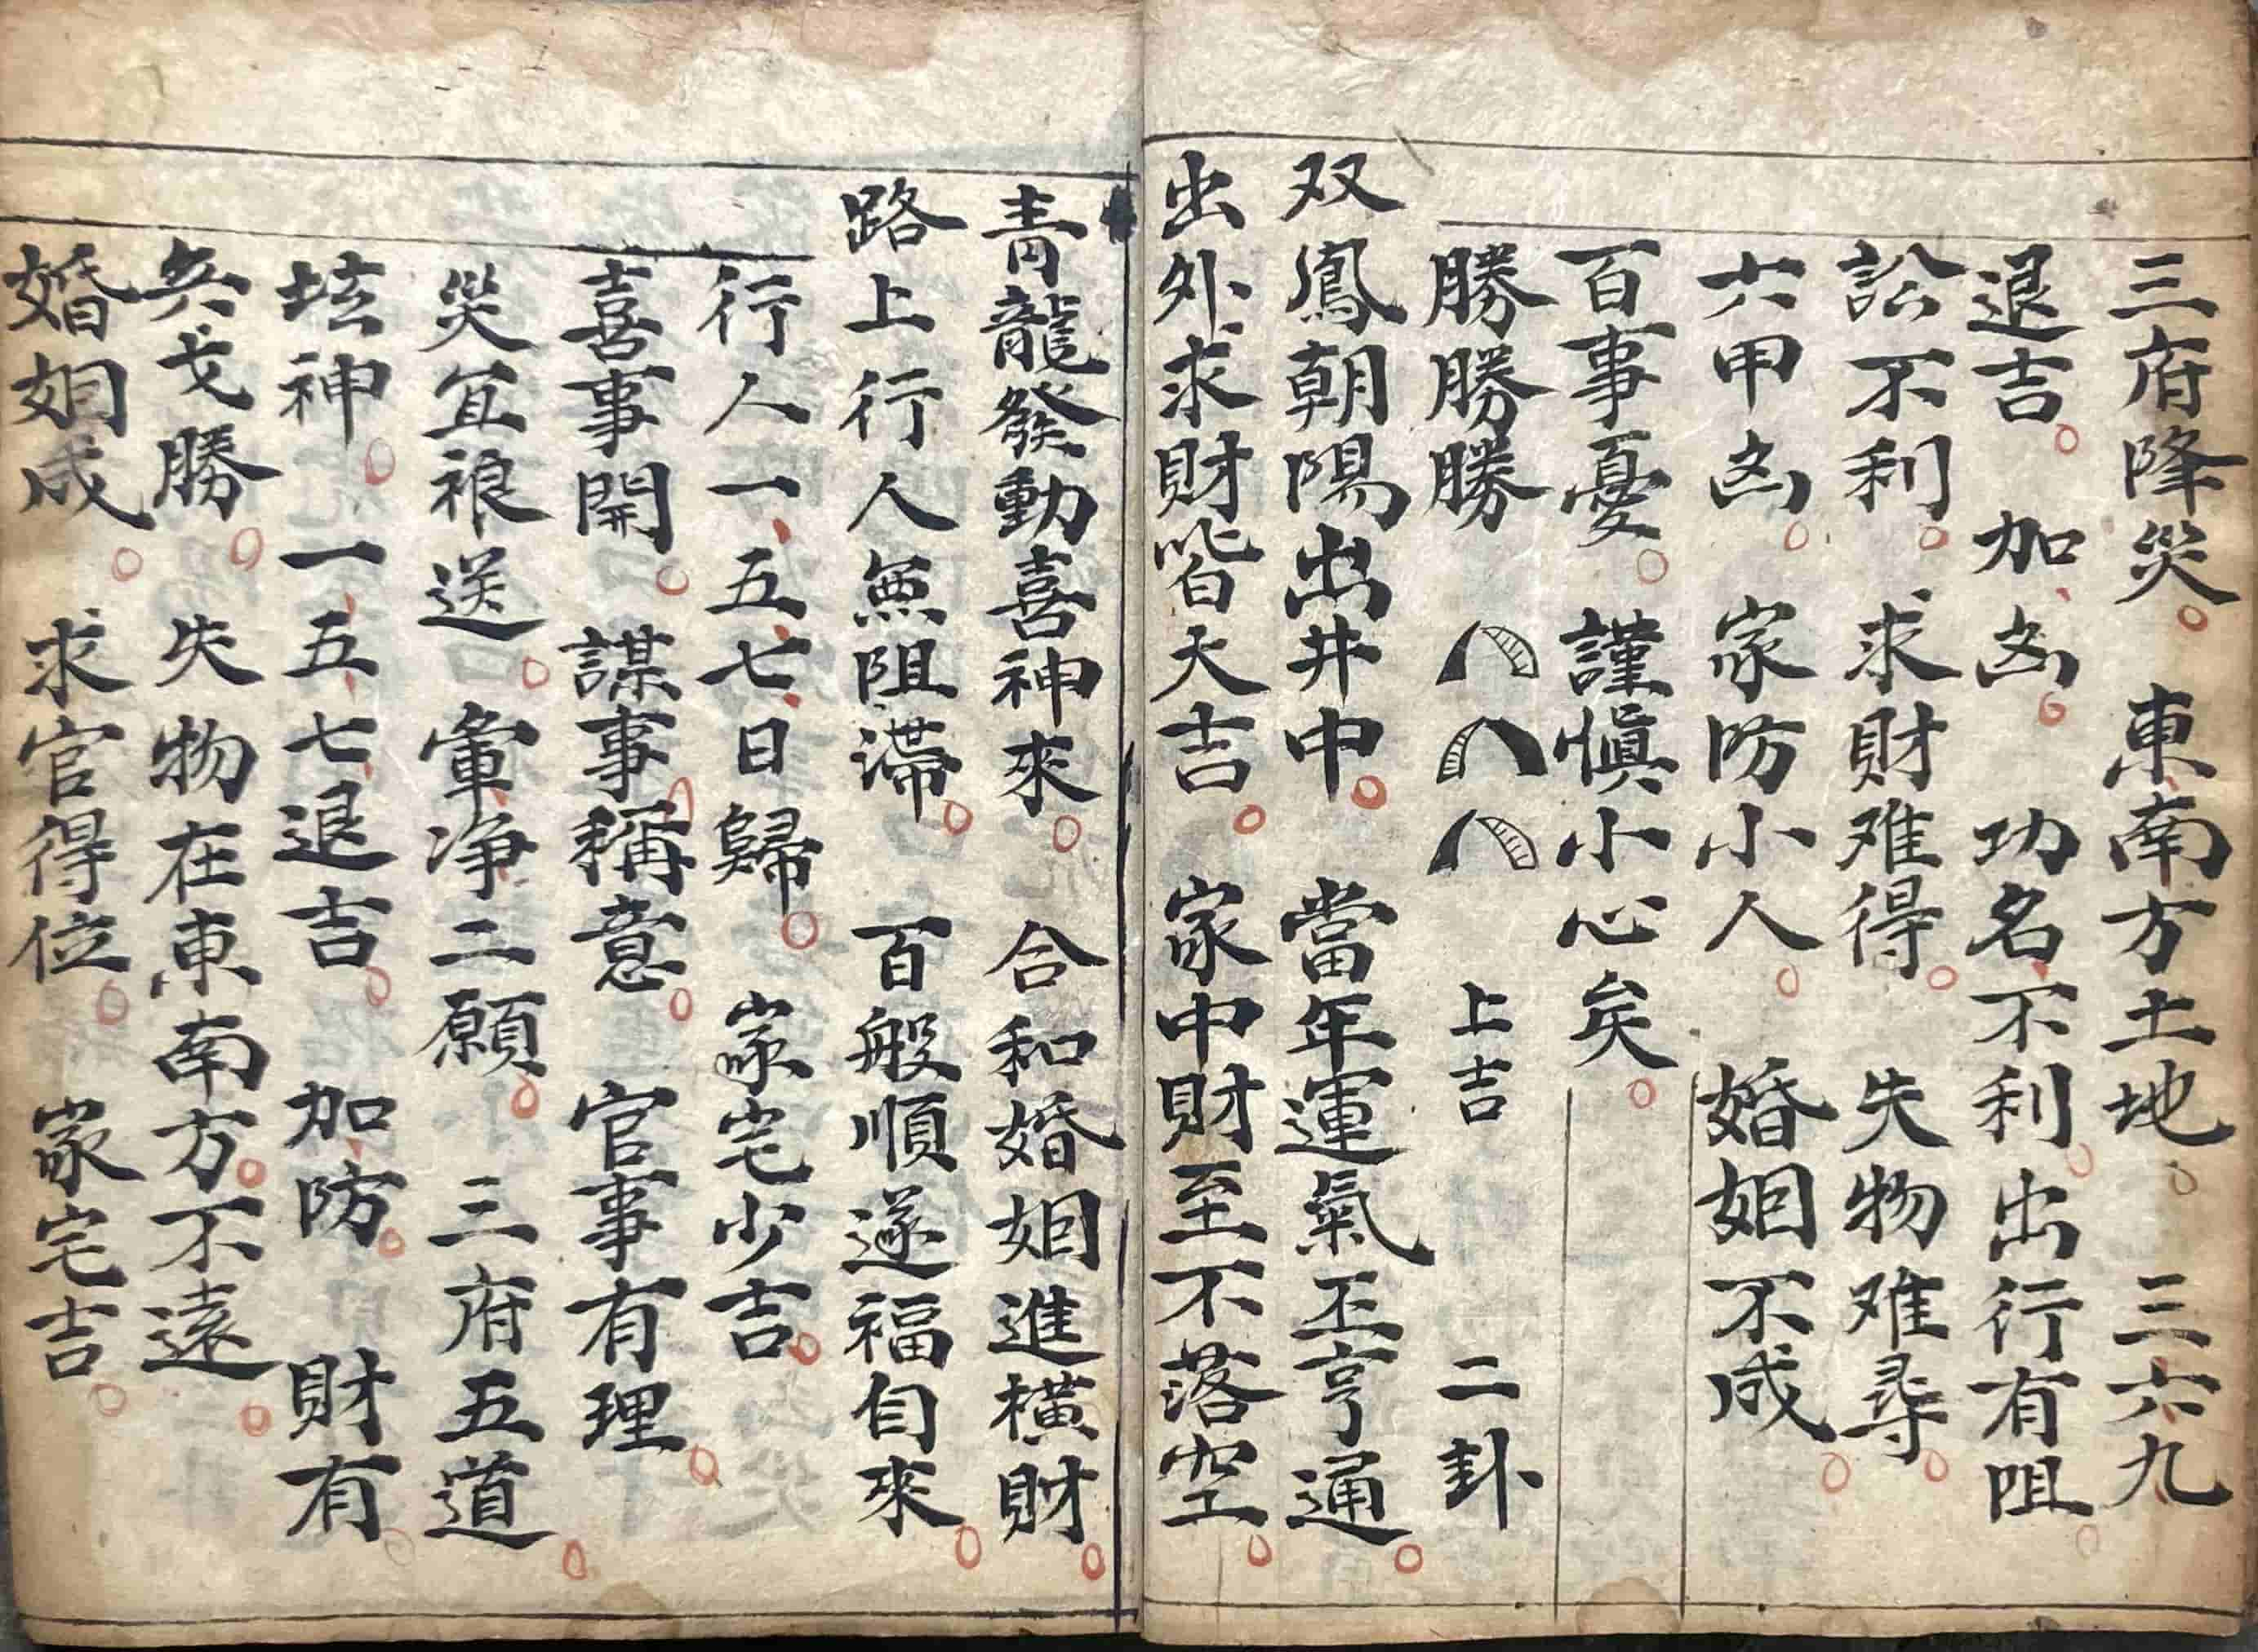 三府降災。東南方土地。三六九
退吉。加凶。功名不利。出行有咀
訟不利。求財难得。失物难尋。
六甲凶。家防小人。婚姻不成。
百事憂。謹慎小心矣。
勝勝勝 上吉 二卦
双鳳朝陽出井中。當年運氣丕亨通。
出外求財皆大吉。家中財至不落空。
青龍發動喜神來。合和婚姻進橫財。
路上行人無阻滯。百般順遂福自來。
行人一、五、七、日歸。家宅少吉。
喜事開。謀事稱意。官事有理。
災宜禳送。彙净二願。三府五道。
坛神。一、五、七、退吉。加防。財有。
兵戈勝。失物在東南方。不遠。
婚姻成。求官得位。家宅吉。